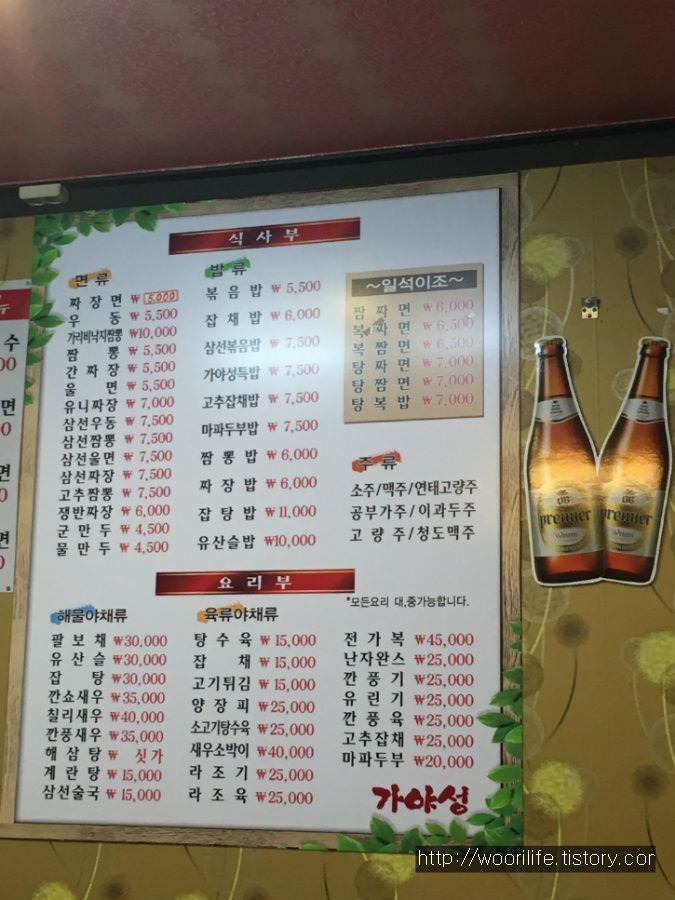 식사부
면류
짜장면 ₩5,000
우동 ₩5,500
가리비낙지짬뽕 ₩10,000
짬뽕 ₩5,500
간짜장 ₩5,500
울면 ₩5,500
유니짜장 ₩7,000
삼선우동 ₩7,500
삼선짬뽕 ₩7,500
삼선울면 ₩7,500
삼선짜장 ₩7,500
고추짬뽕 ₩7,500
쟁반짜장 ₩6,000
군만두 ₩4,500
물만두 ₩4,500
밥류
볶음밥 ₩5,500
잡채밥 ₩6,000
삼선볶음밥 ₩7,500
가야성특밥 ₩7,500
고추잡채밥 ₩7,500
마파두부밥 ₩7,500
짬뽕밥 ₩6,000
짜장밥 ₩6,000
잡탕밥 ₩11,000
유산슬밥 ₩10,000
~일석이조~
짬짜면 ₩6,000
복짜면 ₩6,500
복짬면 ₩6,500
탕짜면 ₩7,000
탕짬면 ₩7,000
탕복밥 ₩7,000
주류
소주/맥주/연태고량주
공부가주/이과두주
고량주/청도맥주
요리부
*모든요리 대,중가능합니다.
해물야채류
팔보채 ₩30,000
유산슬 ₩30,000
잡탕 ₩30,000
깐쇼새우 ₩35,000
칠리새우 ₩40,000
깐풍새우 ₩35,000
해삼탕 ₩싯가
계란탕 ₩15,000
삼선술국 ₩15,000
육류야채류
탕수육 ₩15,000
잡채 ₩15,000
고기튀김 ₩15,000
양장피 ₩25,000
소고기탕수육 ₩25,000
새우소박이 ₩40,000
라조기 ₩25,000
라조육 ₩25,000
전가복 ₩45,000
난자완스 ₩25,000
깐풍기 ₩25,000
유린기 ₩25,000
깐풍육 ₩25,000
고추잡채 ₩25,000
마파두부 ₩20,000
가야성
수
면
면
면
OB
premier
OB
premier
http://woorilife.tistory.cor